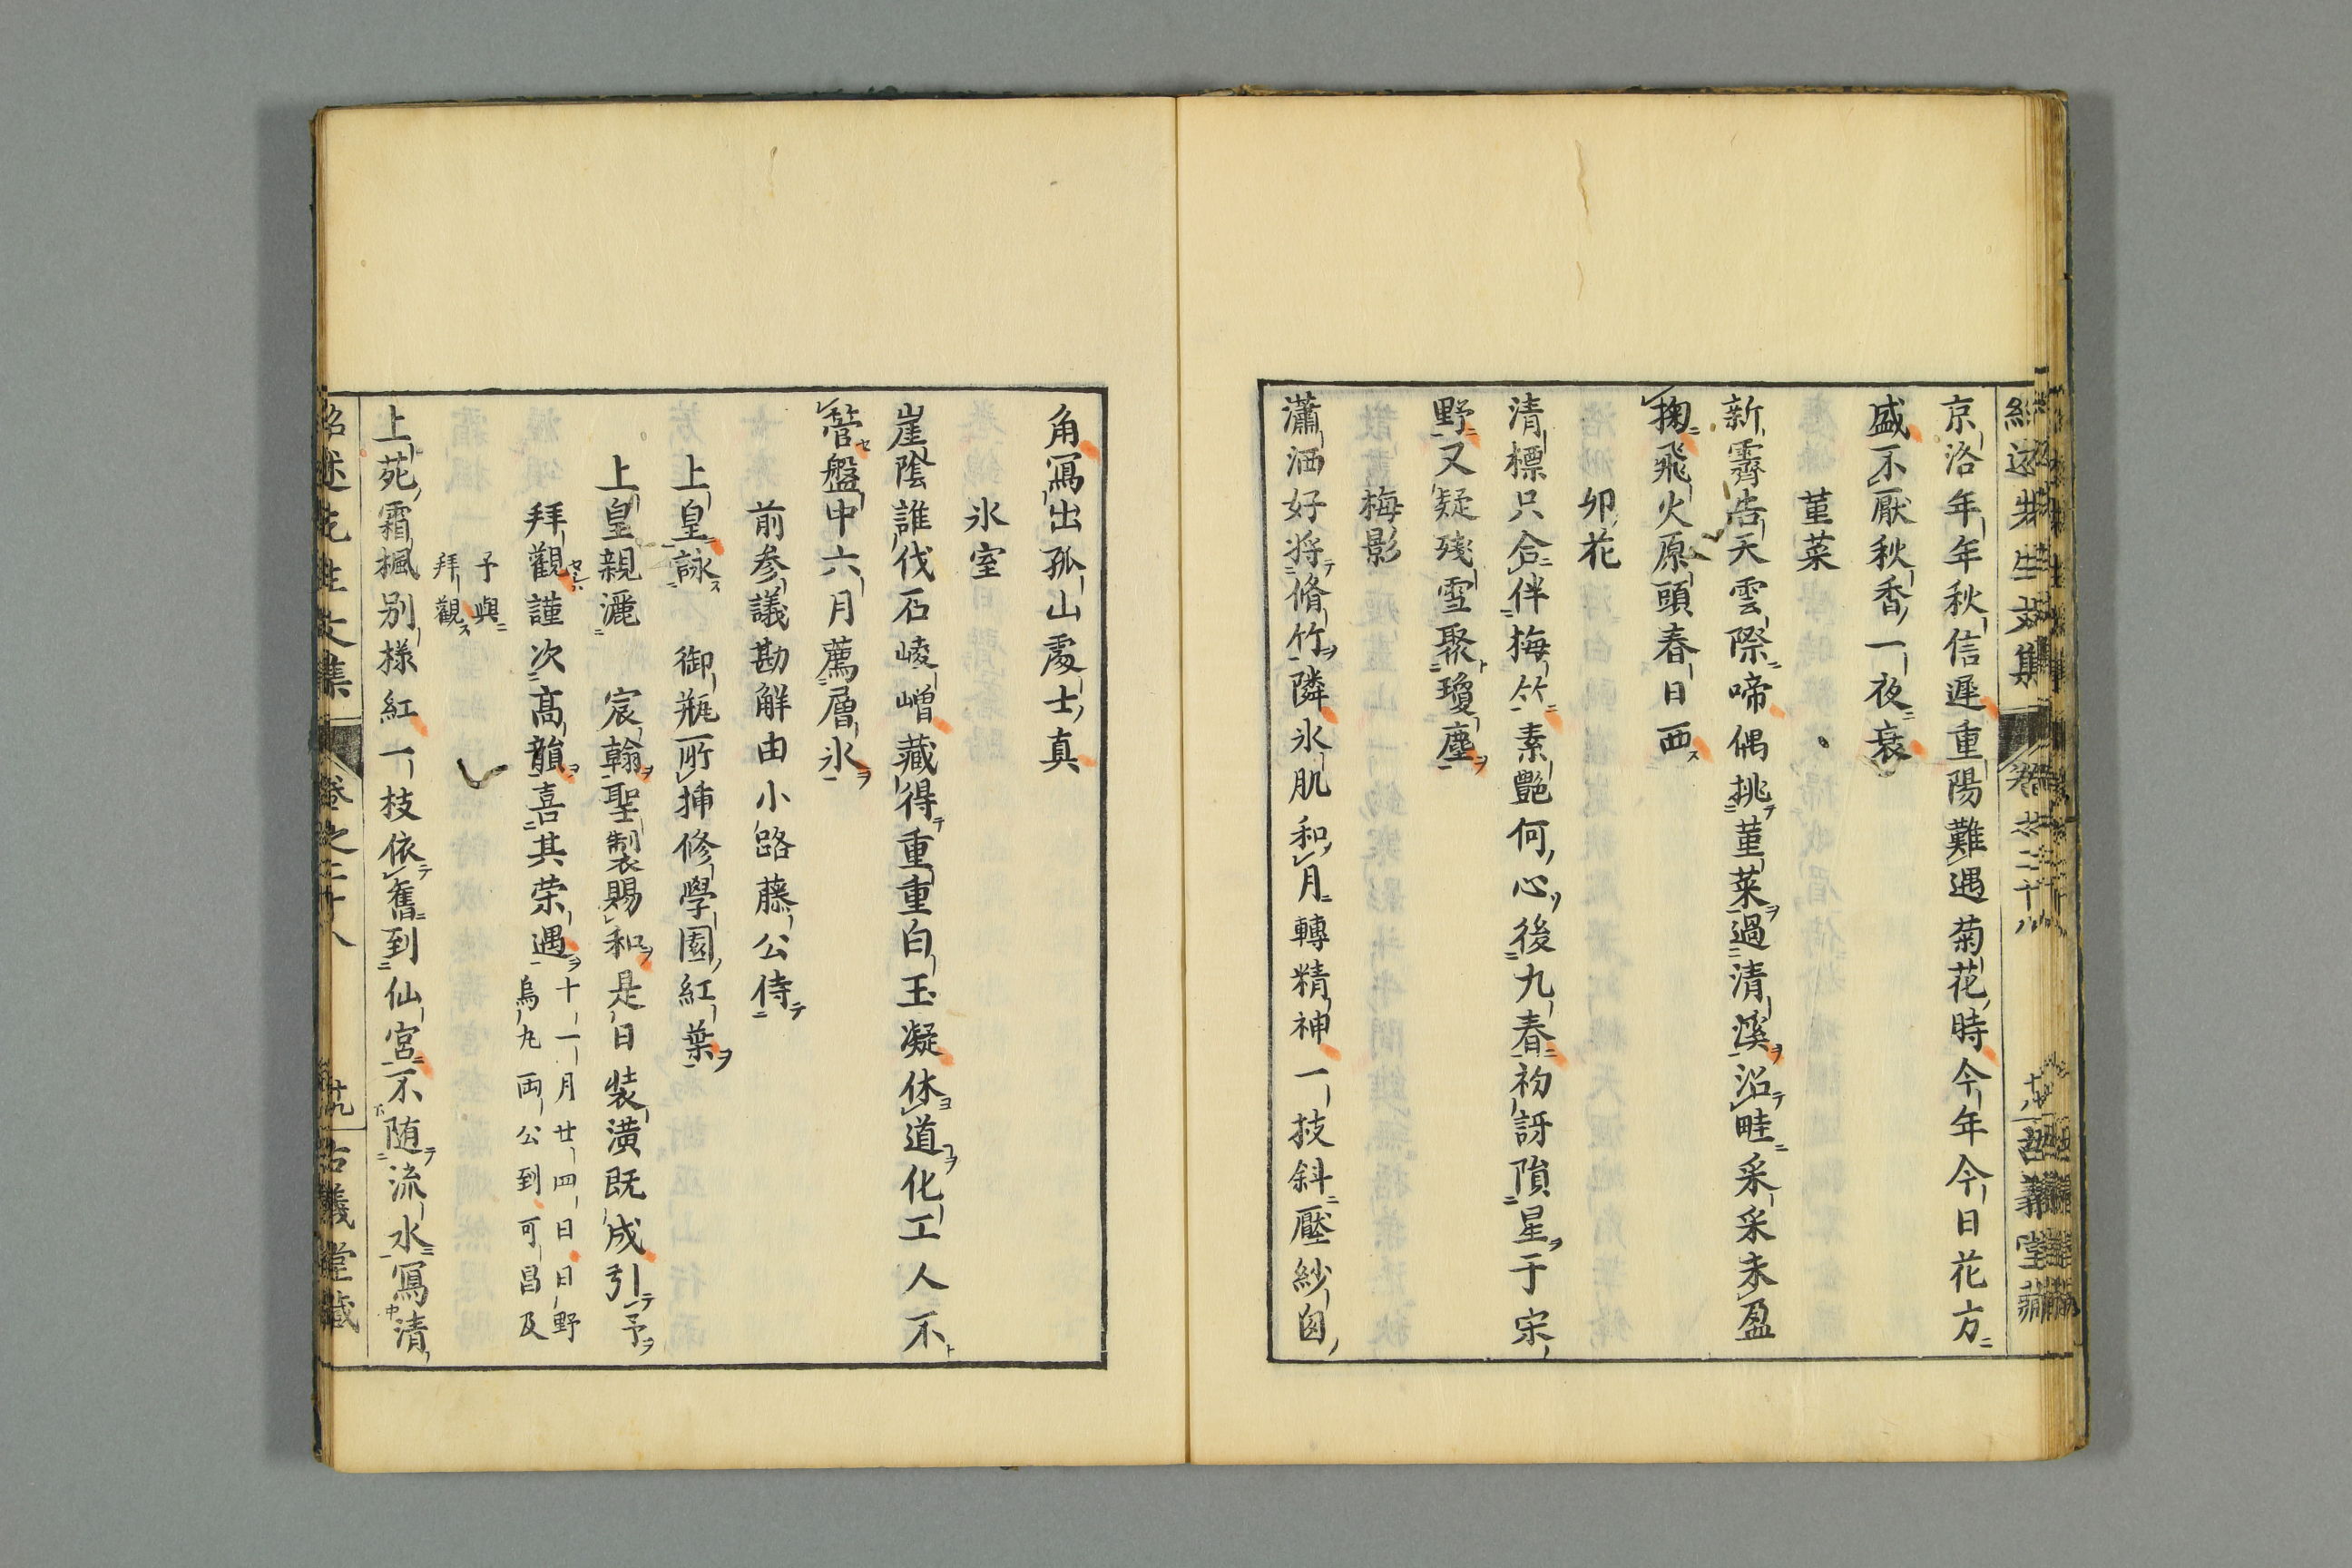 紹述先生文集 卷之二十八 十八 古義堂藏
京洛年年秋信遲重陽難遇菊花時今年今日花方
盛不厭秋香一夜衰
菫菜
新霽告天雲際啼偶挑菫菜過清溪沿畦采采未盈
掬飛火原頭春日西
卯花
清標只合伴梅竹素艷何心後九春初訝隕星于宋
野又疑殘雪聚瓊塵
梅影
瀟洒好将脩竹隣氷肌和月轉精神一技斜壓紗囱
角寫出孤山處士真
氷室
崖陰誰伐石崚嶒藏得重重白玉凝休道化工人不
管盤中六月薦層氷
前參議勘解由小路藤公侍
上皇詠 御瓶所挿修學園紅葉
上皇親灑 宸翰聖製賜和是日装潢既成引予
拜觀謹次高韻喜其荣遇
十一月廿四日日野
烏丸両公到可昌及
予與
拜觀
上苑霜楓别様紅一枝依舊到仙宮不随流水寫清
紹述先生文集 卷之二十八 十九 古義堂藏